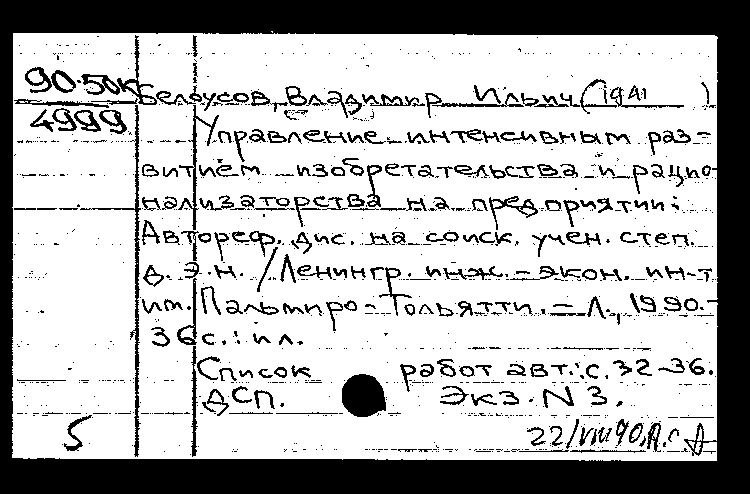 90-50к
4999
Белоусов, Владимир Ильич (1941 )
Управление интенсивным раз-
витием изобретательства и рацио-
нализаторства на предприятии:
Автореф. дис. на соиск. учен. степ.
д. э. н. / Ленингр. инж.-экон. ин-т
им. Пальмиро-Тольятти. – Л., 1990.-
36 с.: ил.
Список работ авт.: с. 32-36.
ДСП. Экз. N 3.
5
22/VIII 90.